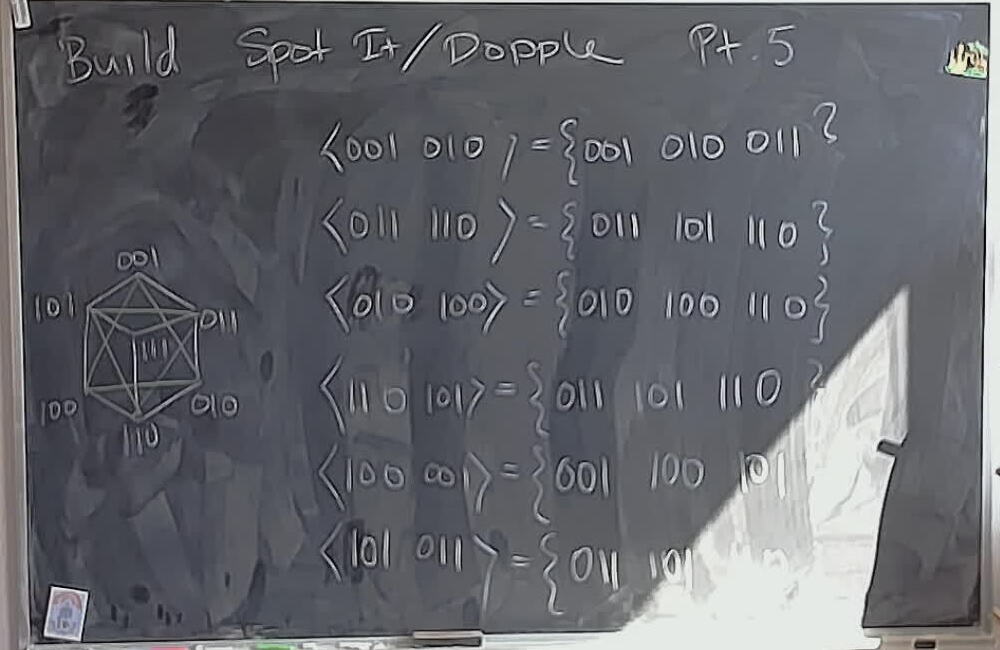 Build Spot It/Dopple Pt.5
<001 010> = {001 010 011}
<011 110> = {011 101 110}
<010 100> = {010 100 110}
<110 101> = {011 101 110}
<100 001> = {001 100 101
<101 011> = {011 101
001
101
011
111
100
010
110